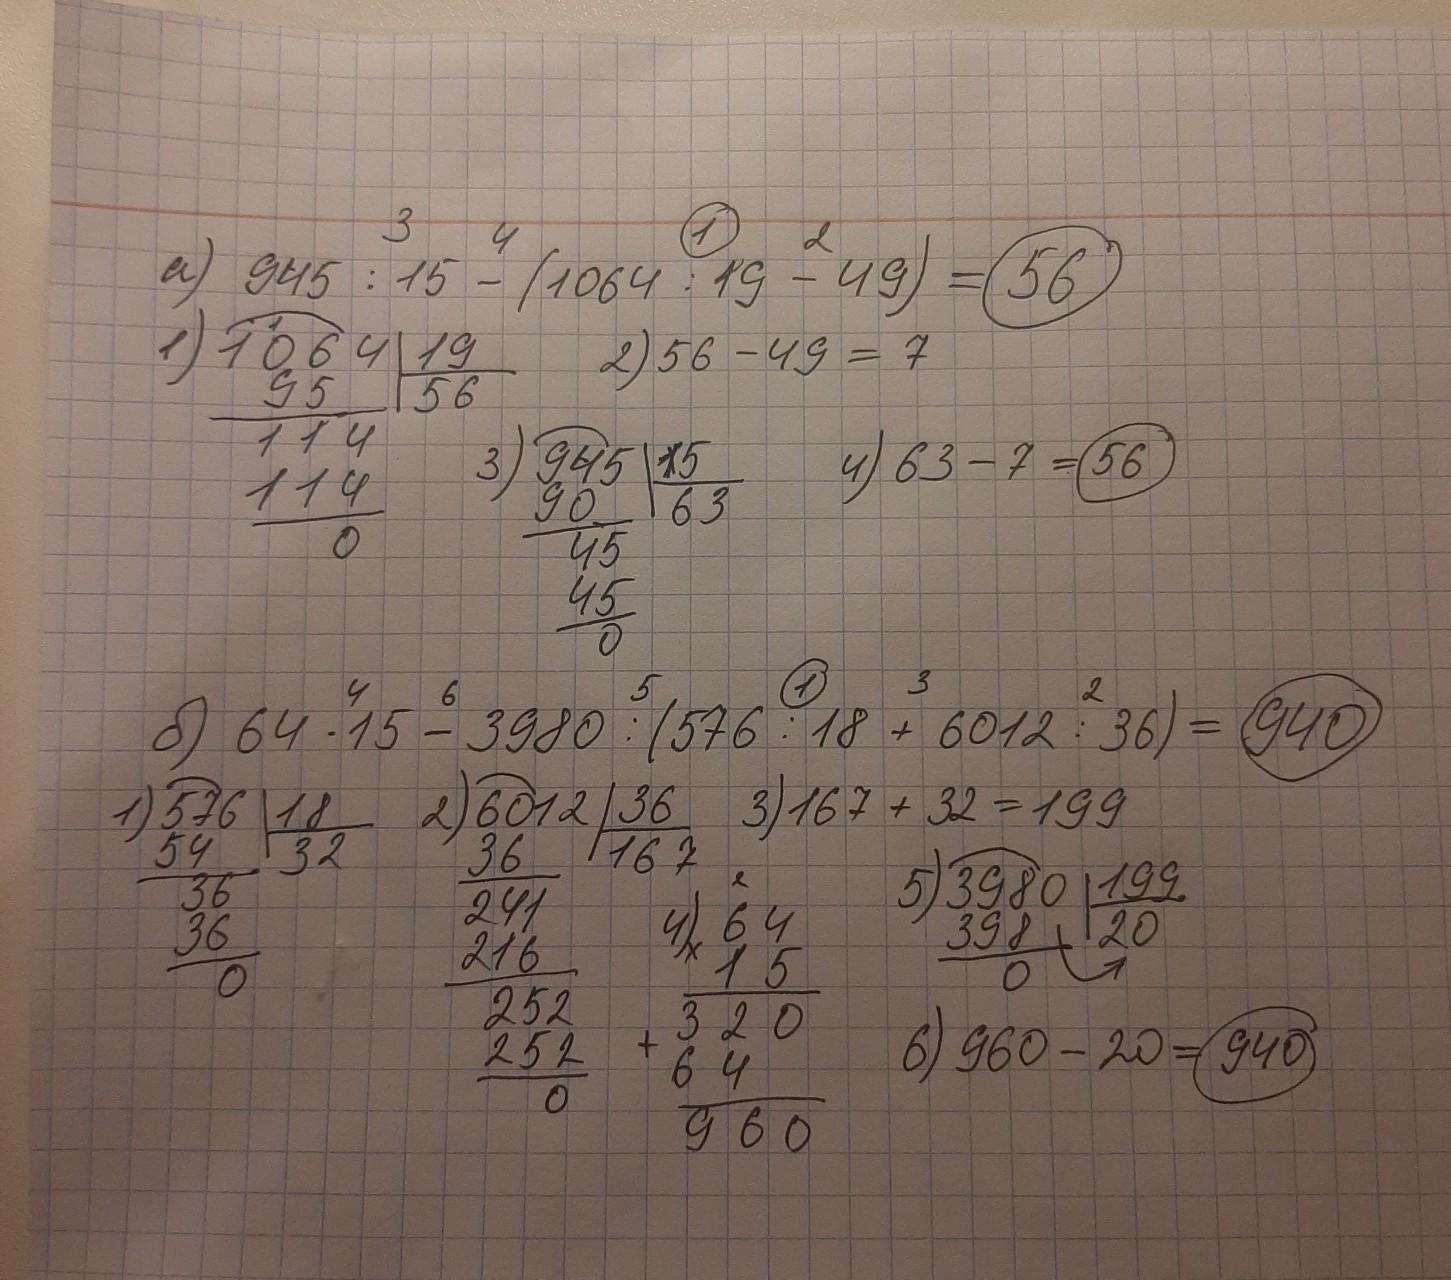 3 4 1 2
а) 945 : 15 - (1064 : 19 - 49) = 56
1) 1064 19 2) 56 - 49 = 7
95 56
114
114
0
3) 945 15 4) 63 - 7 = 56
90 63
45
45
0
4 6 5 1 3 2
б) 64 · 15 - 3980 : (576 : 18 + 6012 : 36) = 940
1) 576 18 2) 6012 36 3) 167 + 32 = 199
54 32 36 167
36 241
36 216
0 252
252
0
2
4) 64
× 15
320
+ 64
960
5) 3980 199
398 20
0
6) 960 - 20 = 940